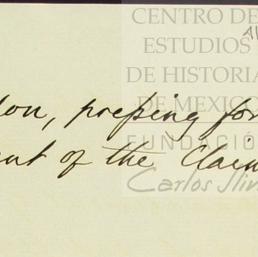 CENTRO DE
ESTUDIOS
DE HISTORIA
DE MEXICO
FUNDACIÓN
Carlos Slim
don, pressing for
ent of the Claim